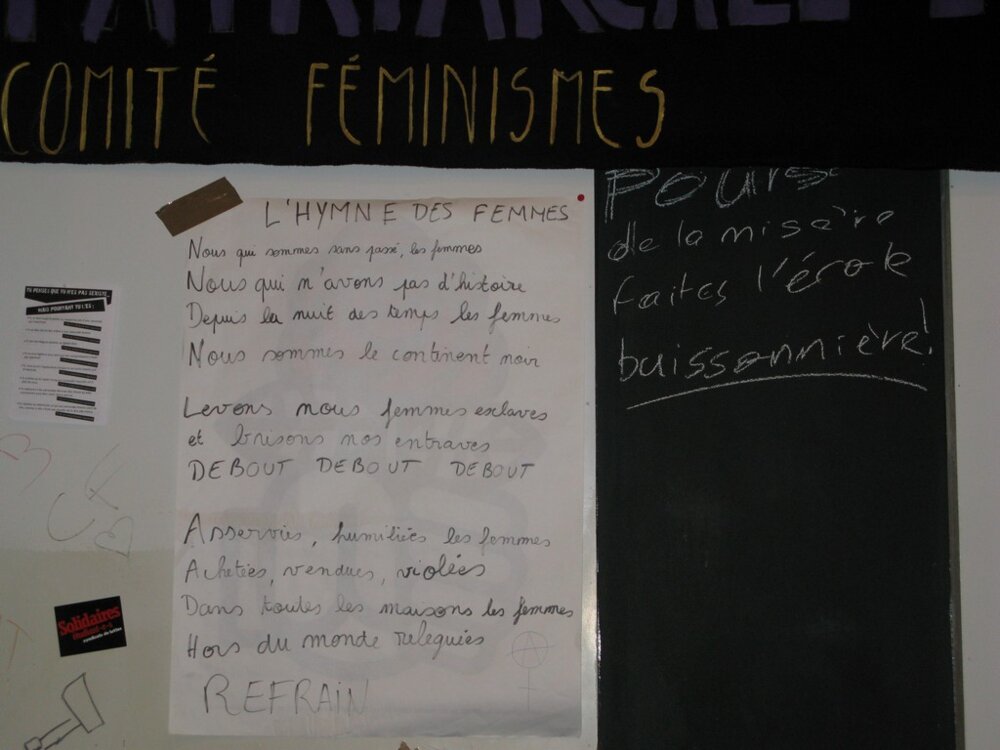 COMITÉ FÉMINISMES
L'HYMNE DES FEMMES
Nous qui sommes sans passé, les femmes
Nous qui n'avons pas d'histoire
Depuis la nuit des temps les femmes
Nous sommes le continent noir
Levons nous femmes esclaves
et brisons nos entraves
DEBOUT DEBOUT DEBOUT
Asservies, humiliées les femmes
Achetées, vendues, violées
Dans toutes les maisons les femmes
Hors du monde releguées
REFRAIN
de la misère
faites l'école
buissonnière!
TU PENSES QUE TU N'ES PAS SEXISTE
MAIS POURTANT TU L'ES :
Solidaires
étudiant-e-s
syndicats de luttes